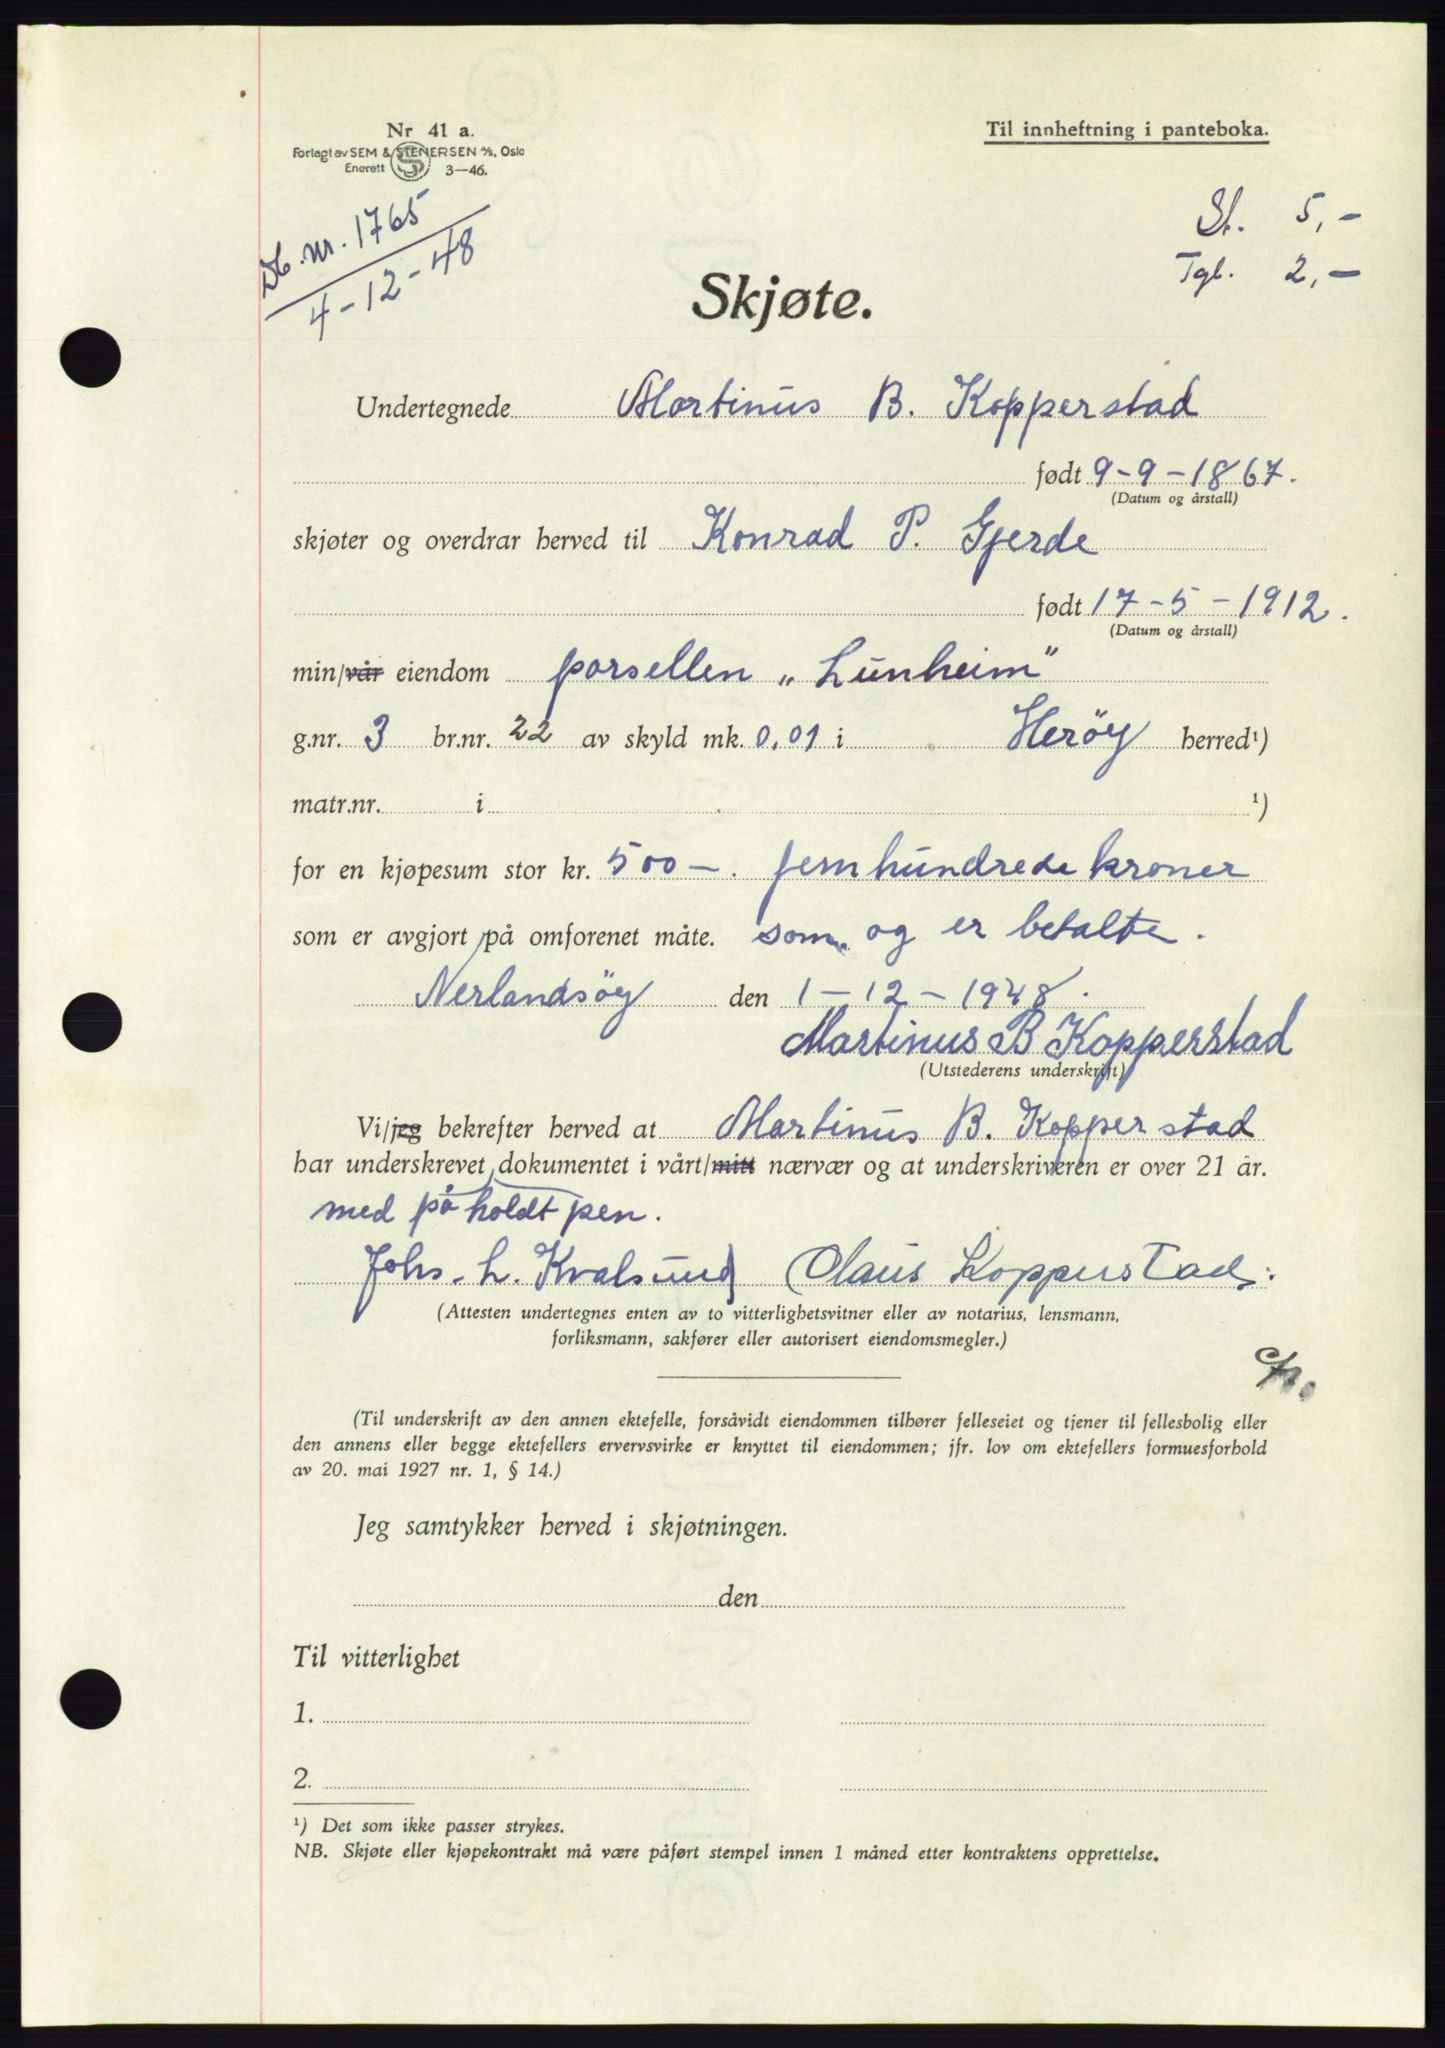 Nr 41 a.
Forlagt av SEM & STENERSEN A/S, Oslo
Enerett 3—46.
Til innheftning i panteboka.
Db. nr. 1765
4-12-48
St. 5,-
Tgl. 2,-
Skjøte.
Undertegnede Martinus B. Kopperstad
født 9-9-1867.
(Datum og årstall)
skjøter og overdrar herved til Konrad P. Gjerde
født 17-5-1912.
(Datum og årstall)
min/vår eiendom parsellen „Lunheim"
g.nr. 3 br.nr. 22 av skyld mk. 0,01 i Herøy herred¹)
matr.nr. i ¹)
for en kjøpesum stor kr. 500-. femhundrede kroner
som er avgjort på omforenet måte. som og er betalte.
Nerlandsöy den 1-12-1948.
Martinus B Kopperstad
(Utstederens underskrift)
Vi/jeg bekrefter herved at Martinus B. Kopperstad
har underskrevet dokumentet i vårt/mitt nærvær og at underskriveren er over 21 år.
med påholdt pen.
Johs. L. Kvalsund Claus Kopperstad.
(Attesten undertegnes enten av to vitterlighetsvitner eller av notarius, lensmann,
forliksmann, sakfører eller autorisert eiendomsmegler.)
(Til underskrift av den annen ektefelle, forsåvidt eiendommen tilhører felleseiet og tjener til fellesbolig eller
den annens eller begge ektefellers ervervsvirke er knyttet til eiendommen; jfr. lov om ektefellers formuesforhold
av 20. mai 1927 nr. 1, § 14.)
Jeg samtykker herved i skjøtningen.
den
Til vitterlighet
1.
2.
¹) Det som ikke passer strykes.
NB. Skjøte eller kjøpekontrakt må være påført stempel innen 1 måned etter kontraktens opprettelse.